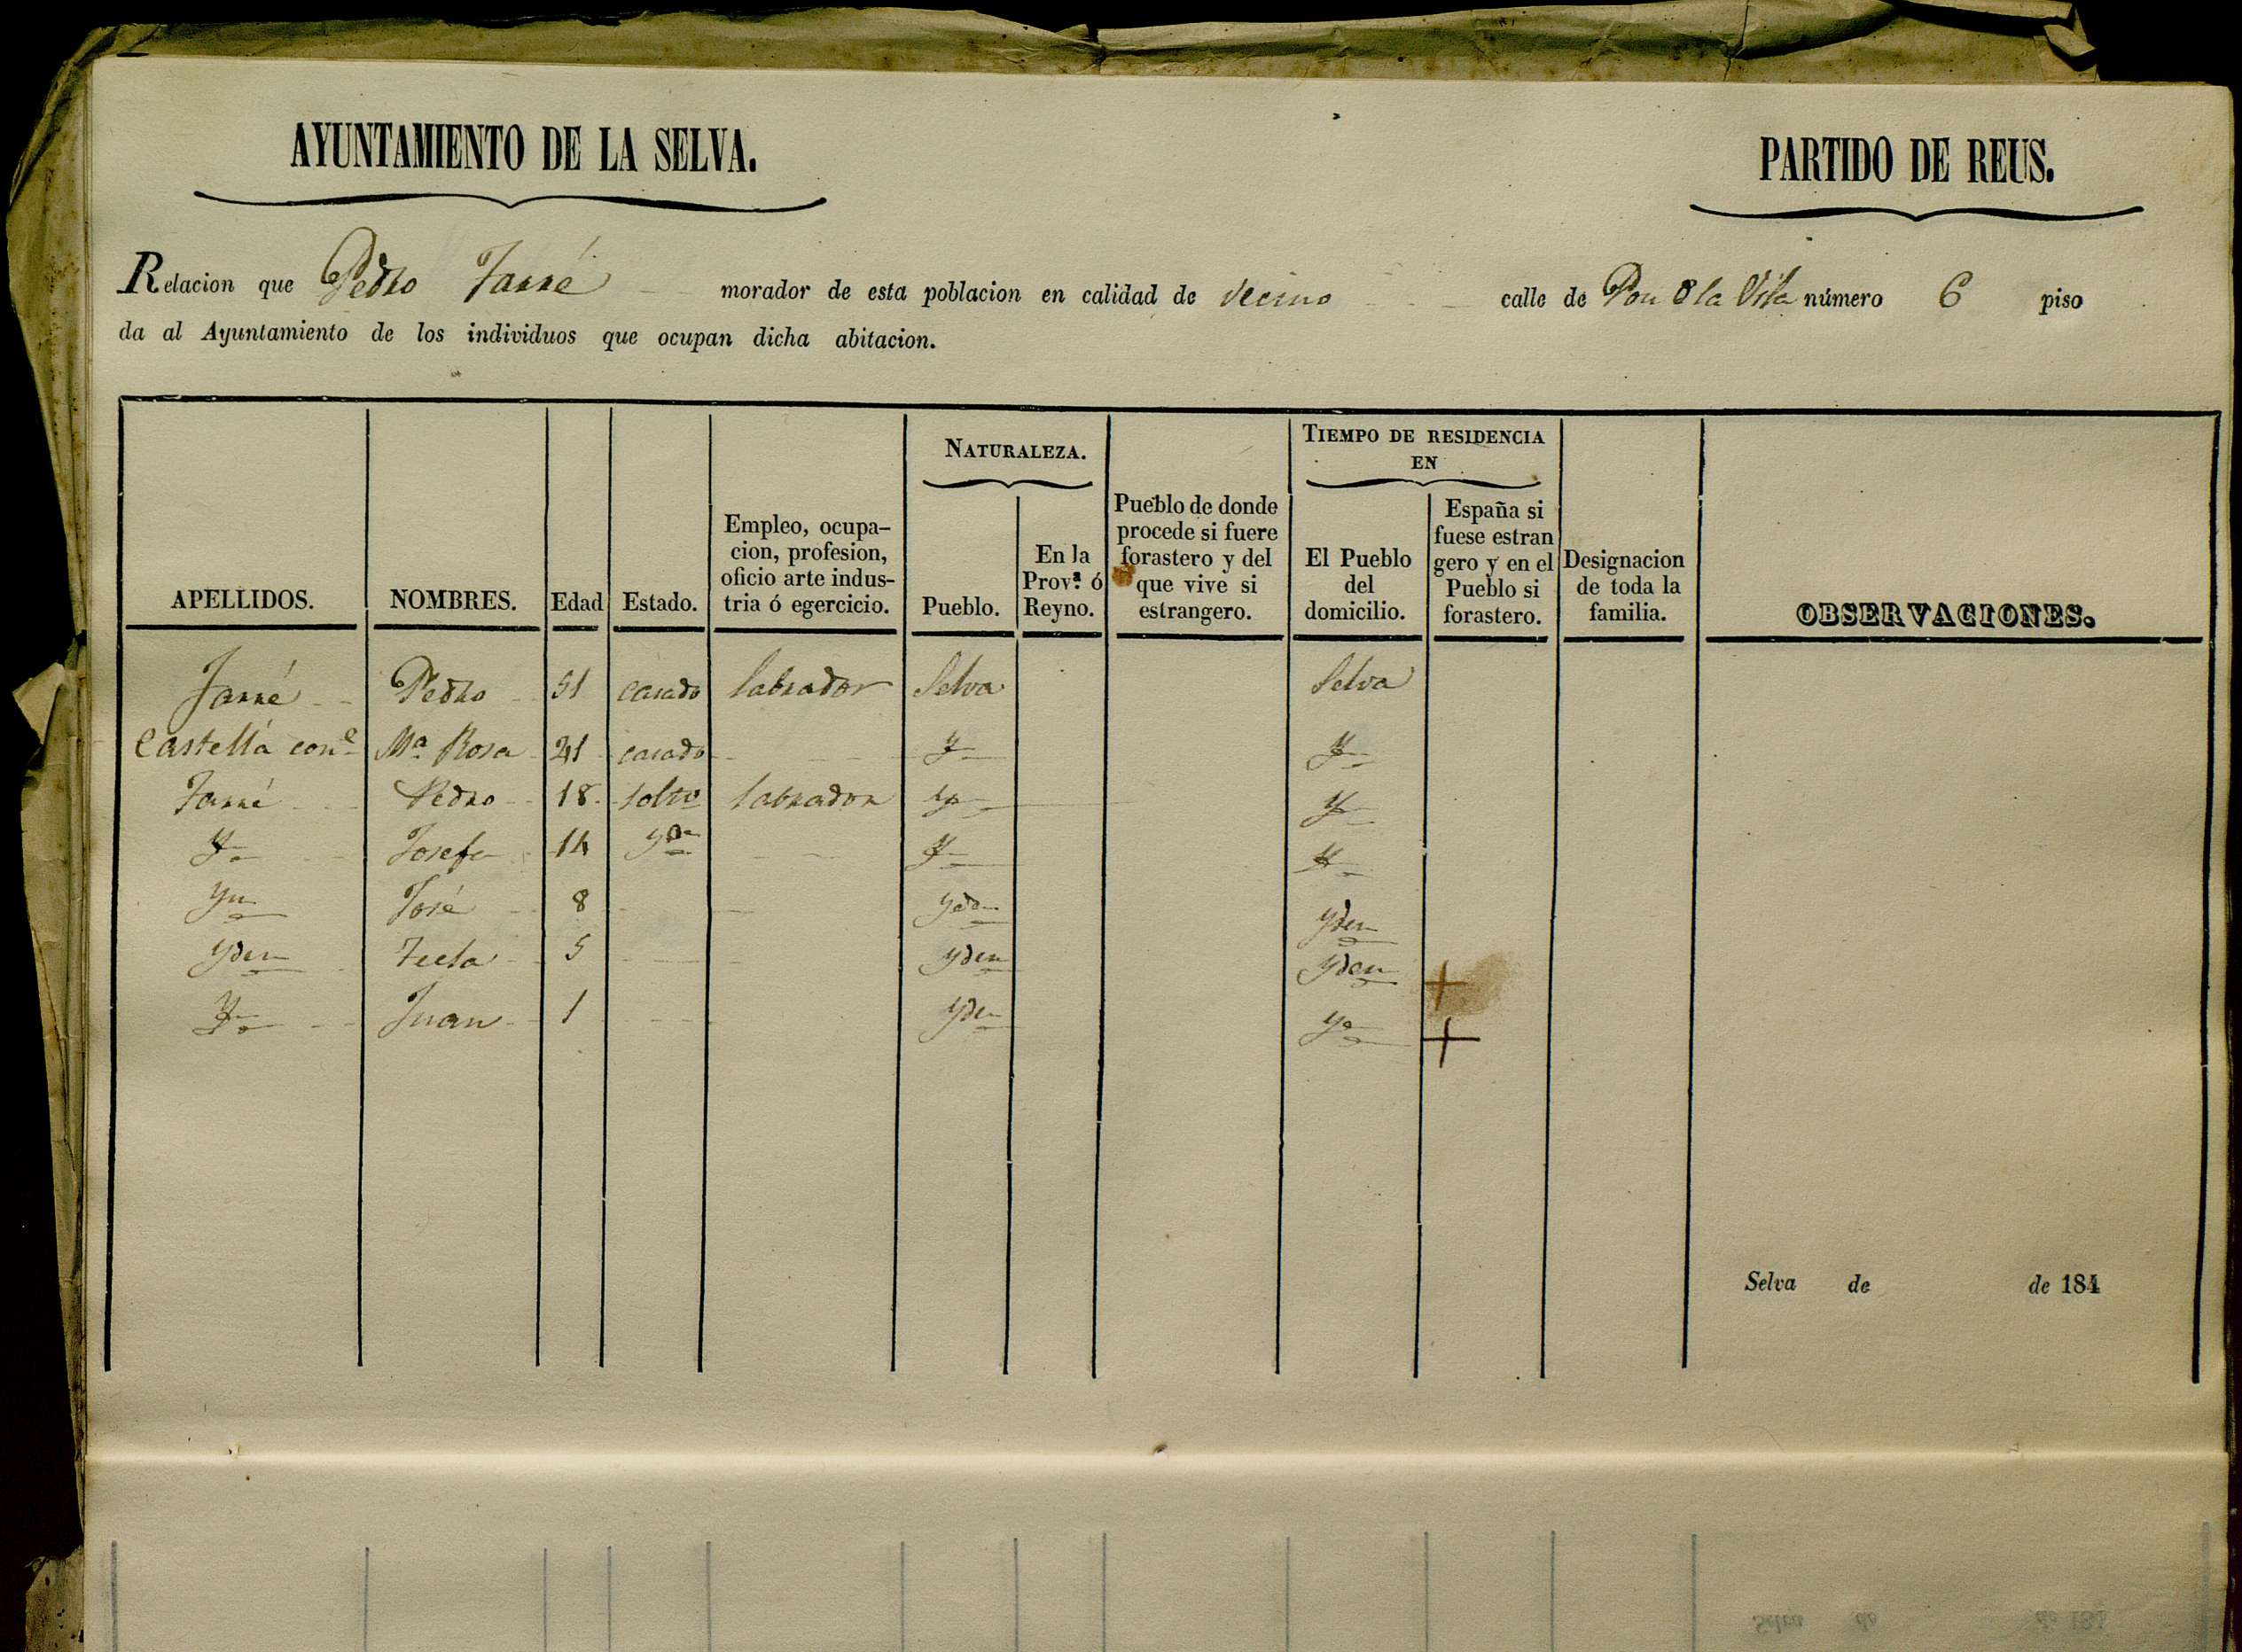 AYUNTAMIENTO DE LA SELVA.
PARTIDO DE REUS.
Relacion que Pedro Farré morador de esta poblacion en calidad de vecino calle de Pou d la Vila número 6 piso
da al Ayuntamiento de los individuos que ocupan dicha abitacion.
NATURALEZA.
TIEMPO DE RESIDENCIA
EN
APELLIDOS.
NOMBRES.
Edad
Estado.
Empleo, ocupa-
cion, profesion,
oficio arte indus-
tria ó egercicio.
Pueblo.
En la
Prov.ª ó
Reyno.
Pueblo de donde
procede si fuere
forastero y del
que vive si
estrangero.
El Pueblo
del
domicilio.
España si
fuese estran
gero y en el
Pueblo si
forastero.
Designacion
de toda la
familia.
OBSERVACIONES.
Farré Pedro 51 casado labrador Selva Selva
Castellá con.e M.a Rosa 41 casado
Farré Pedro 18 solt.o labrador
Josefa 14
José 8 yden
yden Tecla 5 yden yden
Juan 1 yden
Selva de de 184